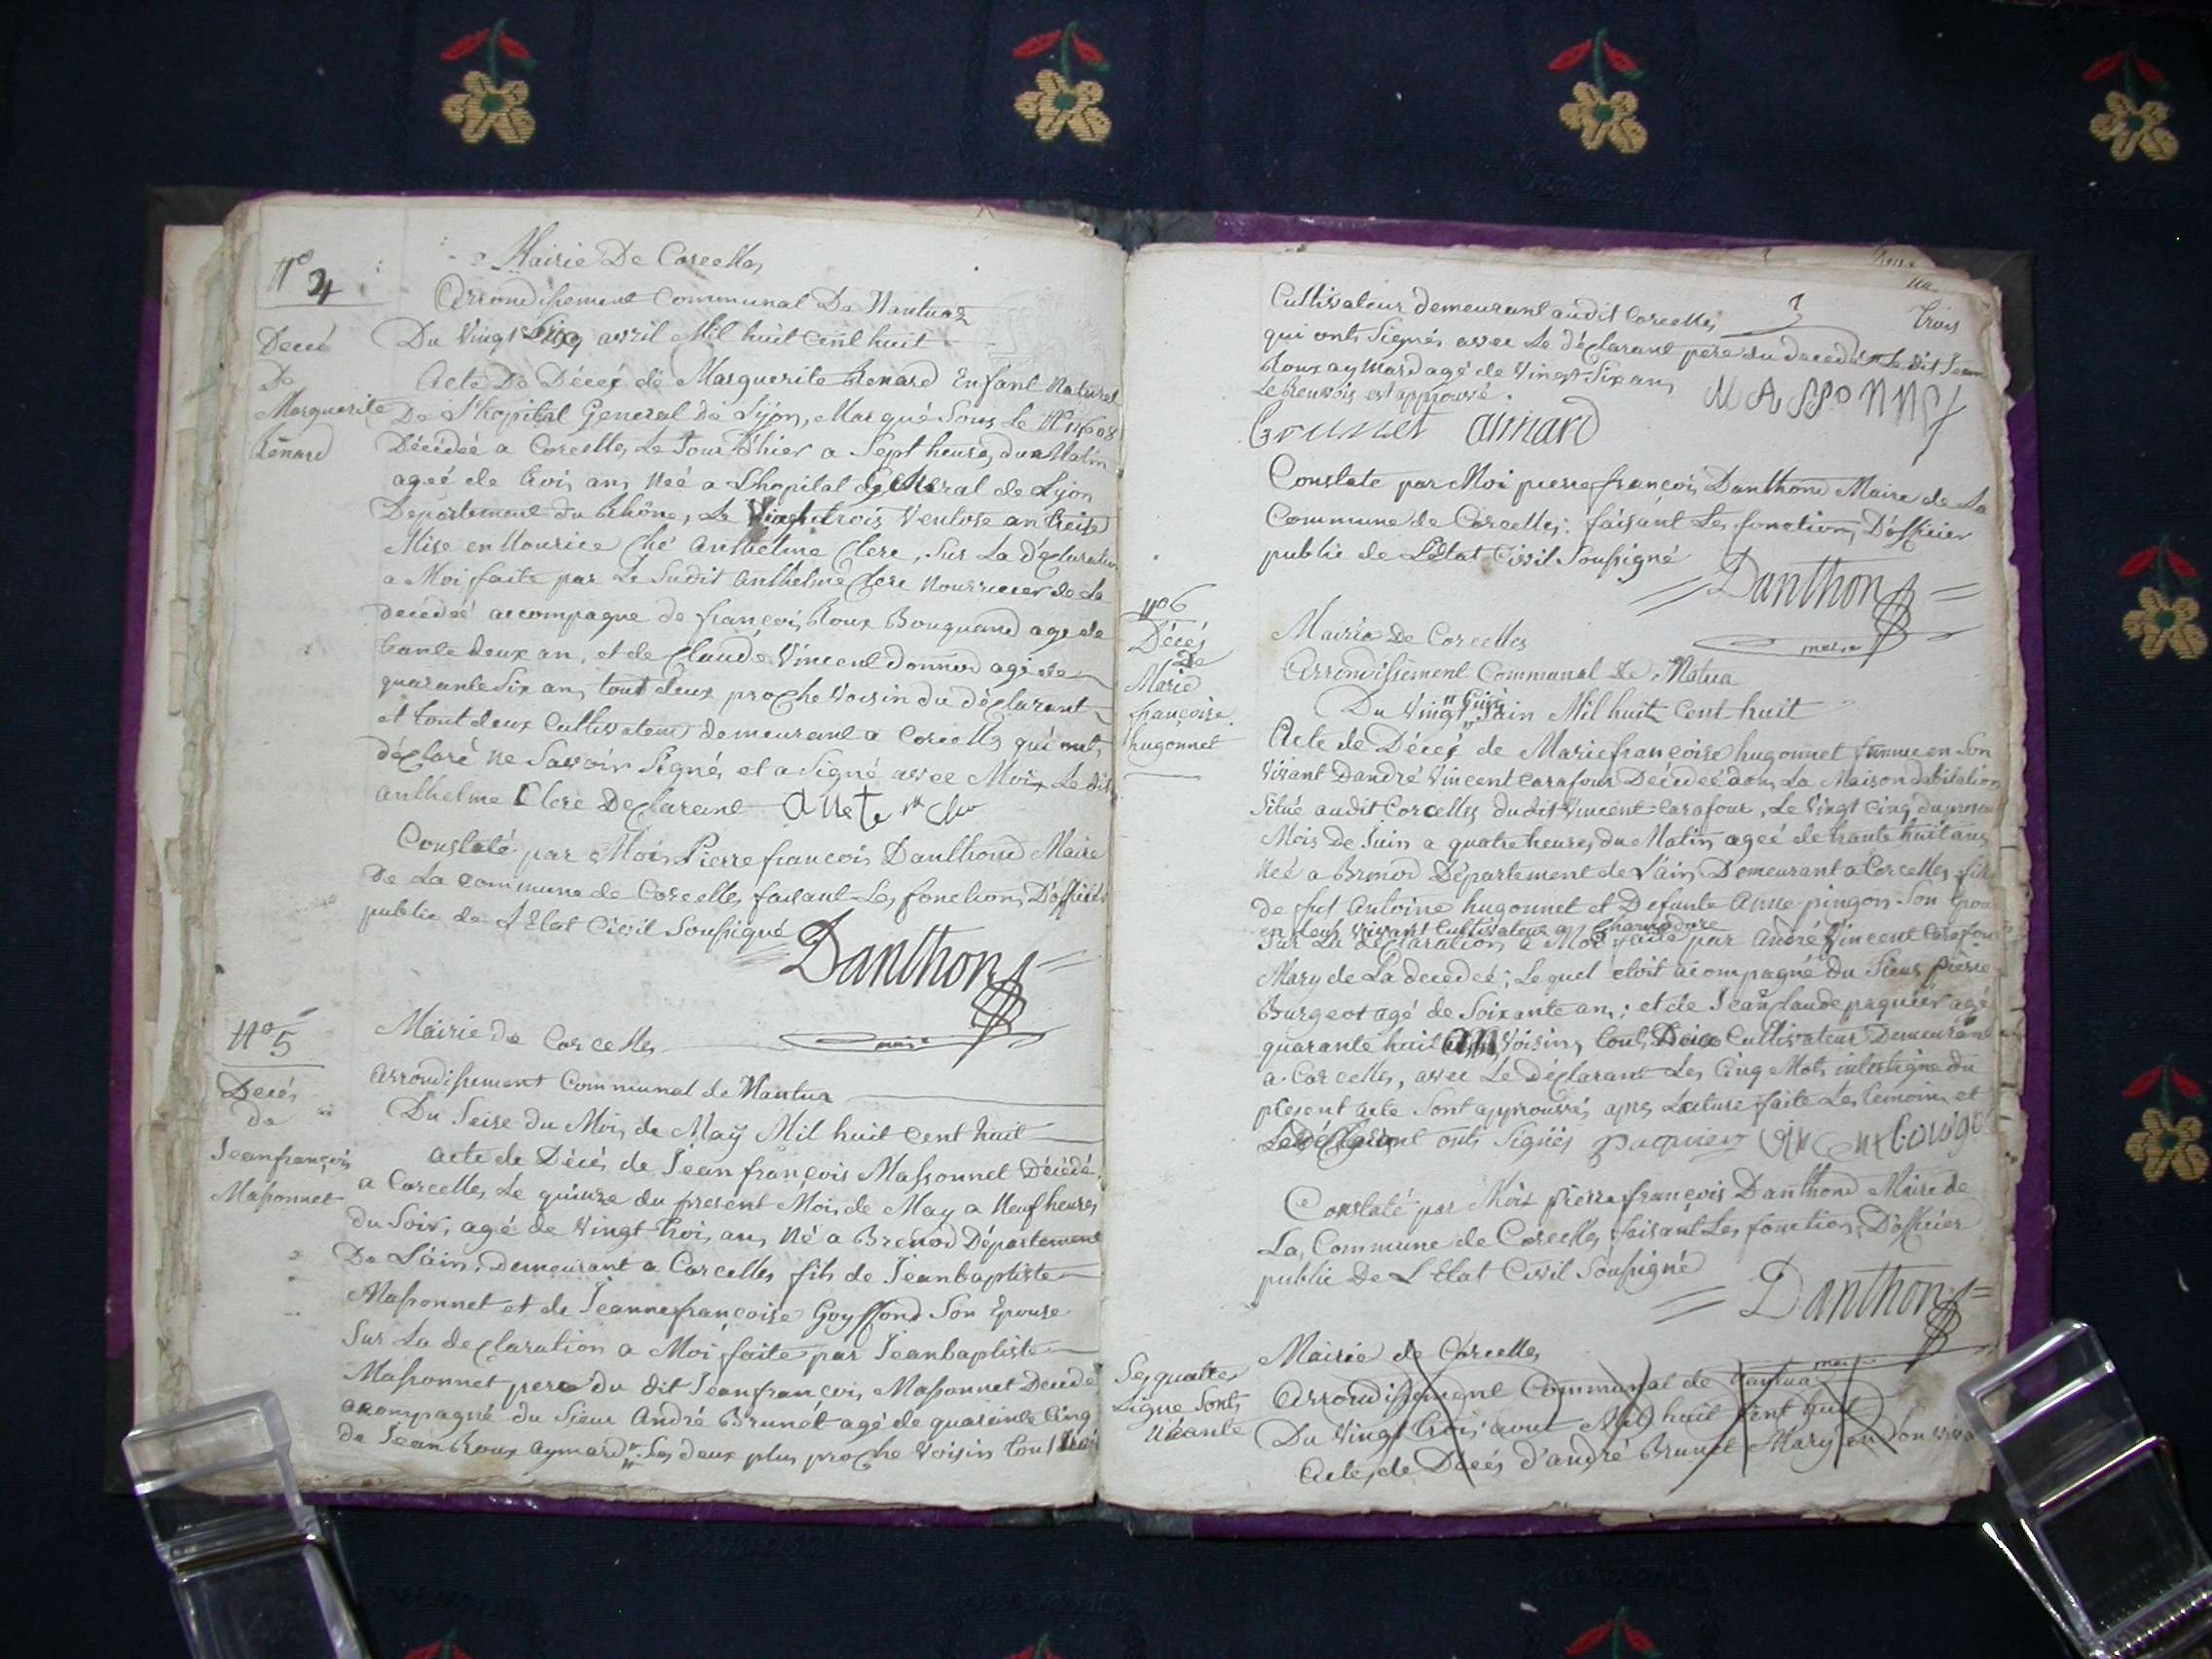 N° 4
Mairie De Corcelles
Arrondissement Communal De Nantua
Decé
De
Marguerite
Renard
Du Vingt avril Mil huit cent huit
Acte De Décéç de Marguerite Renard Enfant Naturel
De L'hopital General de Lÿon, Marqué Sous Le N° 14608
Décédeé a Corcelles, Le Jour D'hier a Sept heures du Matin
ageé de trois ans, Neé a L'hopital general de Lÿon
Département du Rhône, Le Vingt trois Ventose an treize
Mise en Nourice Ché Anthelme Clerc, Sur La déclaration
a Moi faite par Le Sudit Anthelme Clerc Nourricier de La
decédeé accompagne de françois Roux Bouquand agé de
trante deux an, et de Claude Vincent donnod agé de
quarante Six an, tout deux proche Voisin du déclarant
et tout deux Cultivateur demeurant a Corcelles qui ont
déclaré ne Savoir Signé, et a Signé avec Moi, Le dit
anthelme Clerc Declarant
Constaté par Moi Pierre francois Danthond Maire
De La commune de Corcelles faisant Les fonctions D'officier
public de L'Etat Civil Soussigné
Danthon
maire
N° 5
Decés
de
Jeanfrançois
Massonnet
Mairie de Corcelles
Arrondissement Communal de Nantua
Du Seise du Mois de Maÿ Mil huit cent huit
acte de Décés de Jean françois Massonnet Décédé
a Corcelles, Le quinze du present Mois de May a Neuf heures
du Soir, agé de Vingt trois ans, Né a Brenod Département
De L'ain, Demeurant a Corcelles fils de Jeanbaptiste
Massonnet et de Jeannefrançoise Goyffond Son Epouse
Sur La declaration a Moi faite par Jeanbaptiste
Massonnet pere du dit Jeanfrançois Massonnet Decedé
acompagné du Sieur André Brunet agé de quarante Cinq
de Jean Roux Aymard, Les deux plus proche Voisin tout trois
trois
Cultivateur demeurant audit Corcelles
qui onts Signés avec Le déclarant pere du decedé Le dit Jean
Roux aymard agé de Vingt Six ans
Le Renvois est approuvé.
MASSONNET
Brunet aimard
Constate par Moi pierre françois Danthond Maire de La
Commune de Corcelles: faisant Les fonctions D'officier
public de L'Etat Civil Soussigné
Danthon
maire
N° 6
Décés
De
Marie
françoise
hugonnet
Mairie De Corcelles
Arrondissement Communal de Natua
Du Vingt Juin Mil huit Cent huit
Acte de Décés de Mariefrançoise hugonnet femme en Son
Vivant D'andré Vincent carafour Decédeé dans La Maison d'abitation
Située audit Corcelles dudit Vincent Carafour, Le Vingt Cinq du present
Mois De Juin a quatre heures du Matin ageé de trante huit ans
Neé a Brenod Département de L'ain Demeurant a Corcelles fille
de fut Antoine hugonnet et Defunte Anne pingon Son Epouse
en Leur Vivant Cultivateur a
Sur La declaration a Moi faite par André Vincent Carafour
Mary de La decedeé; Lequel etoit acompagné du Sieur pierre
Burgeot agé de Soixante an; et de Jeanclaude paquier agé
quarante huit ans Voisins tout Deux Cultivateur Demeurant
a Corcelles, avec Le Déclarant Les Cinq Mots interligne du
present acte Sont approuvés, apres Lecture faite Les temoins et
Le déclarant onts Signés paquier
Constaté par Moi pierre françois Danthond Maire de
La Commune de Corcelles faisant Les fonctions D'officier
public De L'Etat Civil Soussigné
Danthon
maire
Ses quatres
Ligne Sonts
Néante
Mairie de Corcelles
Arrondissement Communal de Nantua
Du Vingt trois aout Mil huit Cent huit
Acte de Décés d'andré Brunet Mary en Son viva